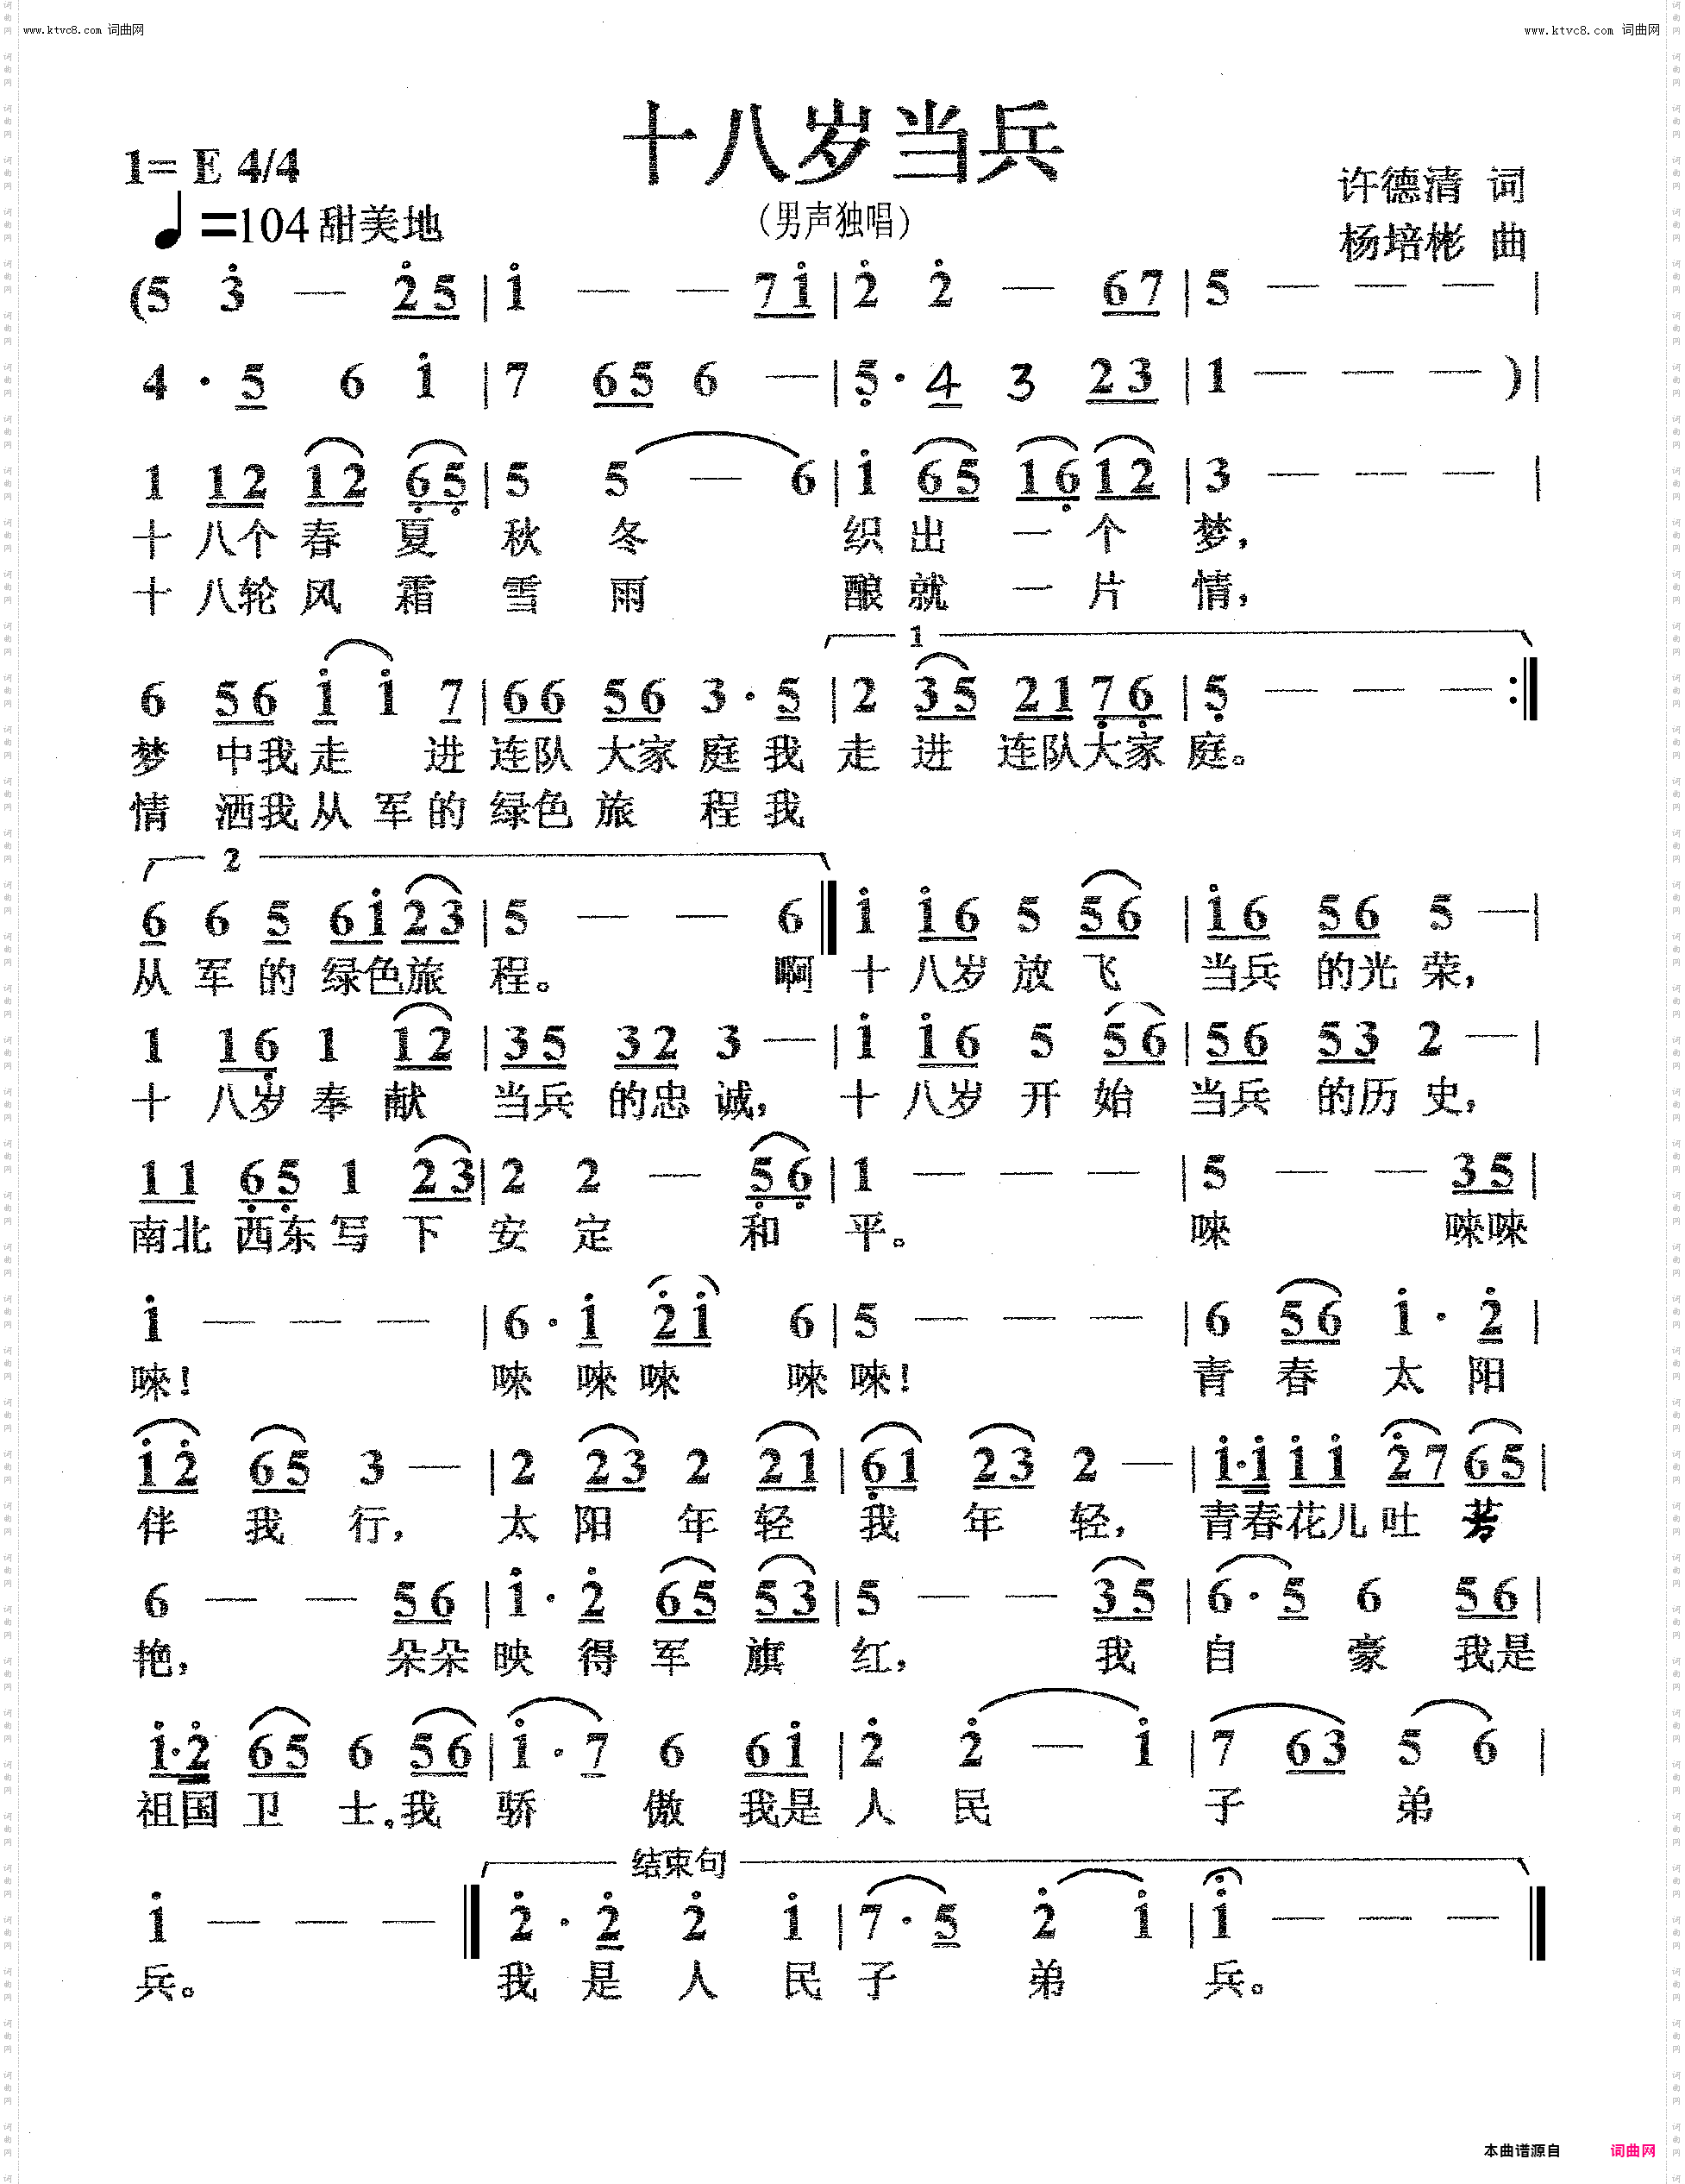 www.ktvc8.com 词曲网
www.ktvc8.com 词曲网
十八岁当兵
1= E 4/4
许德清 词
♩=104 甜美地
(男声独唱)
杨培彬 曲
(5 3̇ — 2̇5 | 1̇ — — 71̇ | 2̇ 2̇ — 67 | 5 — — — |
4 · 5 6 1̇ | 7 65 6 — | 5̣ · 4 3 23 | 1 — — — )|
1 12 12 6̣5̣ | 5 5 — 6 | 1̇ 65 16̣ 12 | 3 — — — |
十 八个 春 夏 秋 冬 织 出 一 个 梦,
十 八轮 风 霜 雪 雨 酿 就 一 片 情,
1
6 56 1̇ 1̇ 7 | 66 56 3 · 5 | 2 35 217̣6̣ | 5̣ — — — :‖
梦 中我 走 进 连队 大家 庭 我 走 进 连队大家 庭。
情 洒我 从 军 的 绿色 旅 程 我
2
6 6 5 61̇23 | 5 — — 6 ‖ 1̇ 1̇6 5 56 | 1̇6 56 5 — |
从 军 的 绿色旅 程。 啊 十 八岁 放 飞 当兵 的光 荣,
1 16̣ 1 12 | 35 32 3 — | 1̇ 1̇6 5 56 | 56 53 2 — |
十 八岁 奉 献 当兵 的忠 诚, 十 八岁 开 始 当兵 的历 史,
11 6̣5̣ 1 23 | 2 2 — 5̣6̣ | 1 — — — | 5 — — 35 |
南北 西东 写 下 安 定 和 平。 唻 唻唻
1̇ — — — | 6 · 1̇ 2̇1̇ 6 | 5 — — — | 6 56 1̇ · 2̇ |
唻! 唻 唻 唻 唻 唻! 青 春 太 阳
1̇2̇ 65 3 — | 2 23 2 21 | 6̣1 23 2 — | 1̇·1̇ 1̇1̇ 2̇7 65 |
伴 我 行, 太 阳 年 轻 我 年 轻, 青春花儿 吐 芳
6 — — 56 | 1̇ · 2̇ 65 53 | 5 — — 35 | 6 · 5 6 56 |
艳, 朵朵 映 得 军 旗 红, 我 自 豪 我是
1̇·2̇ 65 6 56 | 1̇ · 7 6 61̇ | 2̇ 2̇ — 1̇ | 7 63 5 6 |
祖国 卫 士。我 骄 傲 我是 人 民 子 弟
结束句
1̇ — — — ‖ 2̇ · 2̇ 2̇ 1̇ | 7 · 5 2̇ 1̇ | 1̇ — — — ‖
兵。 我 是 人 民 子 弟 兵。
本曲谱源自 词曲网